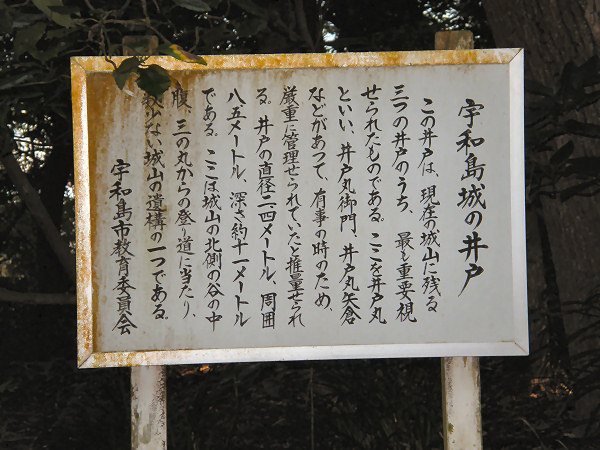 宇和島城の井戸
この井戸は、現在の城山に残る
三つの井戸のうち、最も重要視
せられたものである。ここを井戸丸
といい、井戸丸御門、井戸丸矢倉
などがあって、有事の時のため、
厳重に管理せられていたと推量せられ
る。井戸の直径二.四メートル、周囲
八五メートル、深さ約十一メートル
である。ここは城山の北側の谷の中
腹、三の丸からの登り道に当たり、
数少ない城山の遺構の一つである。
宇和島市教育委員会